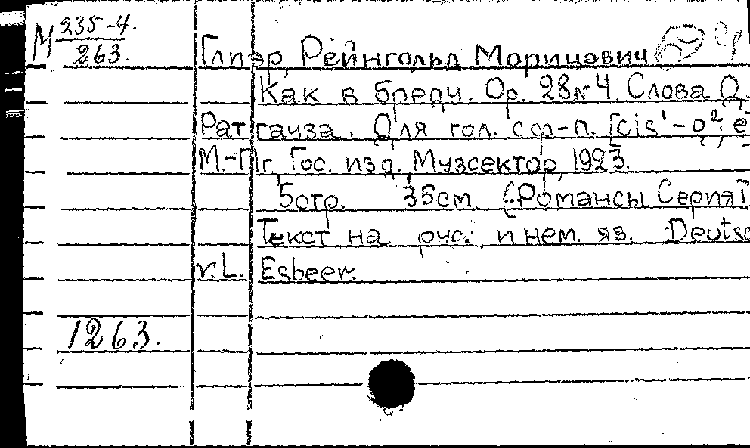 М 235-4.
263.
Глиэр, Рейнгольд Морицович
Как в бреду. Op. 28 №4. Слова Д.
Ратгауза. Для гол. с ф-п. [cis¹-
М.-Пг, Гос. изд. Музсектор, 1923.
5 стр. 35 см. (Романсы Серия
Текст на русс. и нем. яз. Deutsc
v. L. Esbeer.
1263.